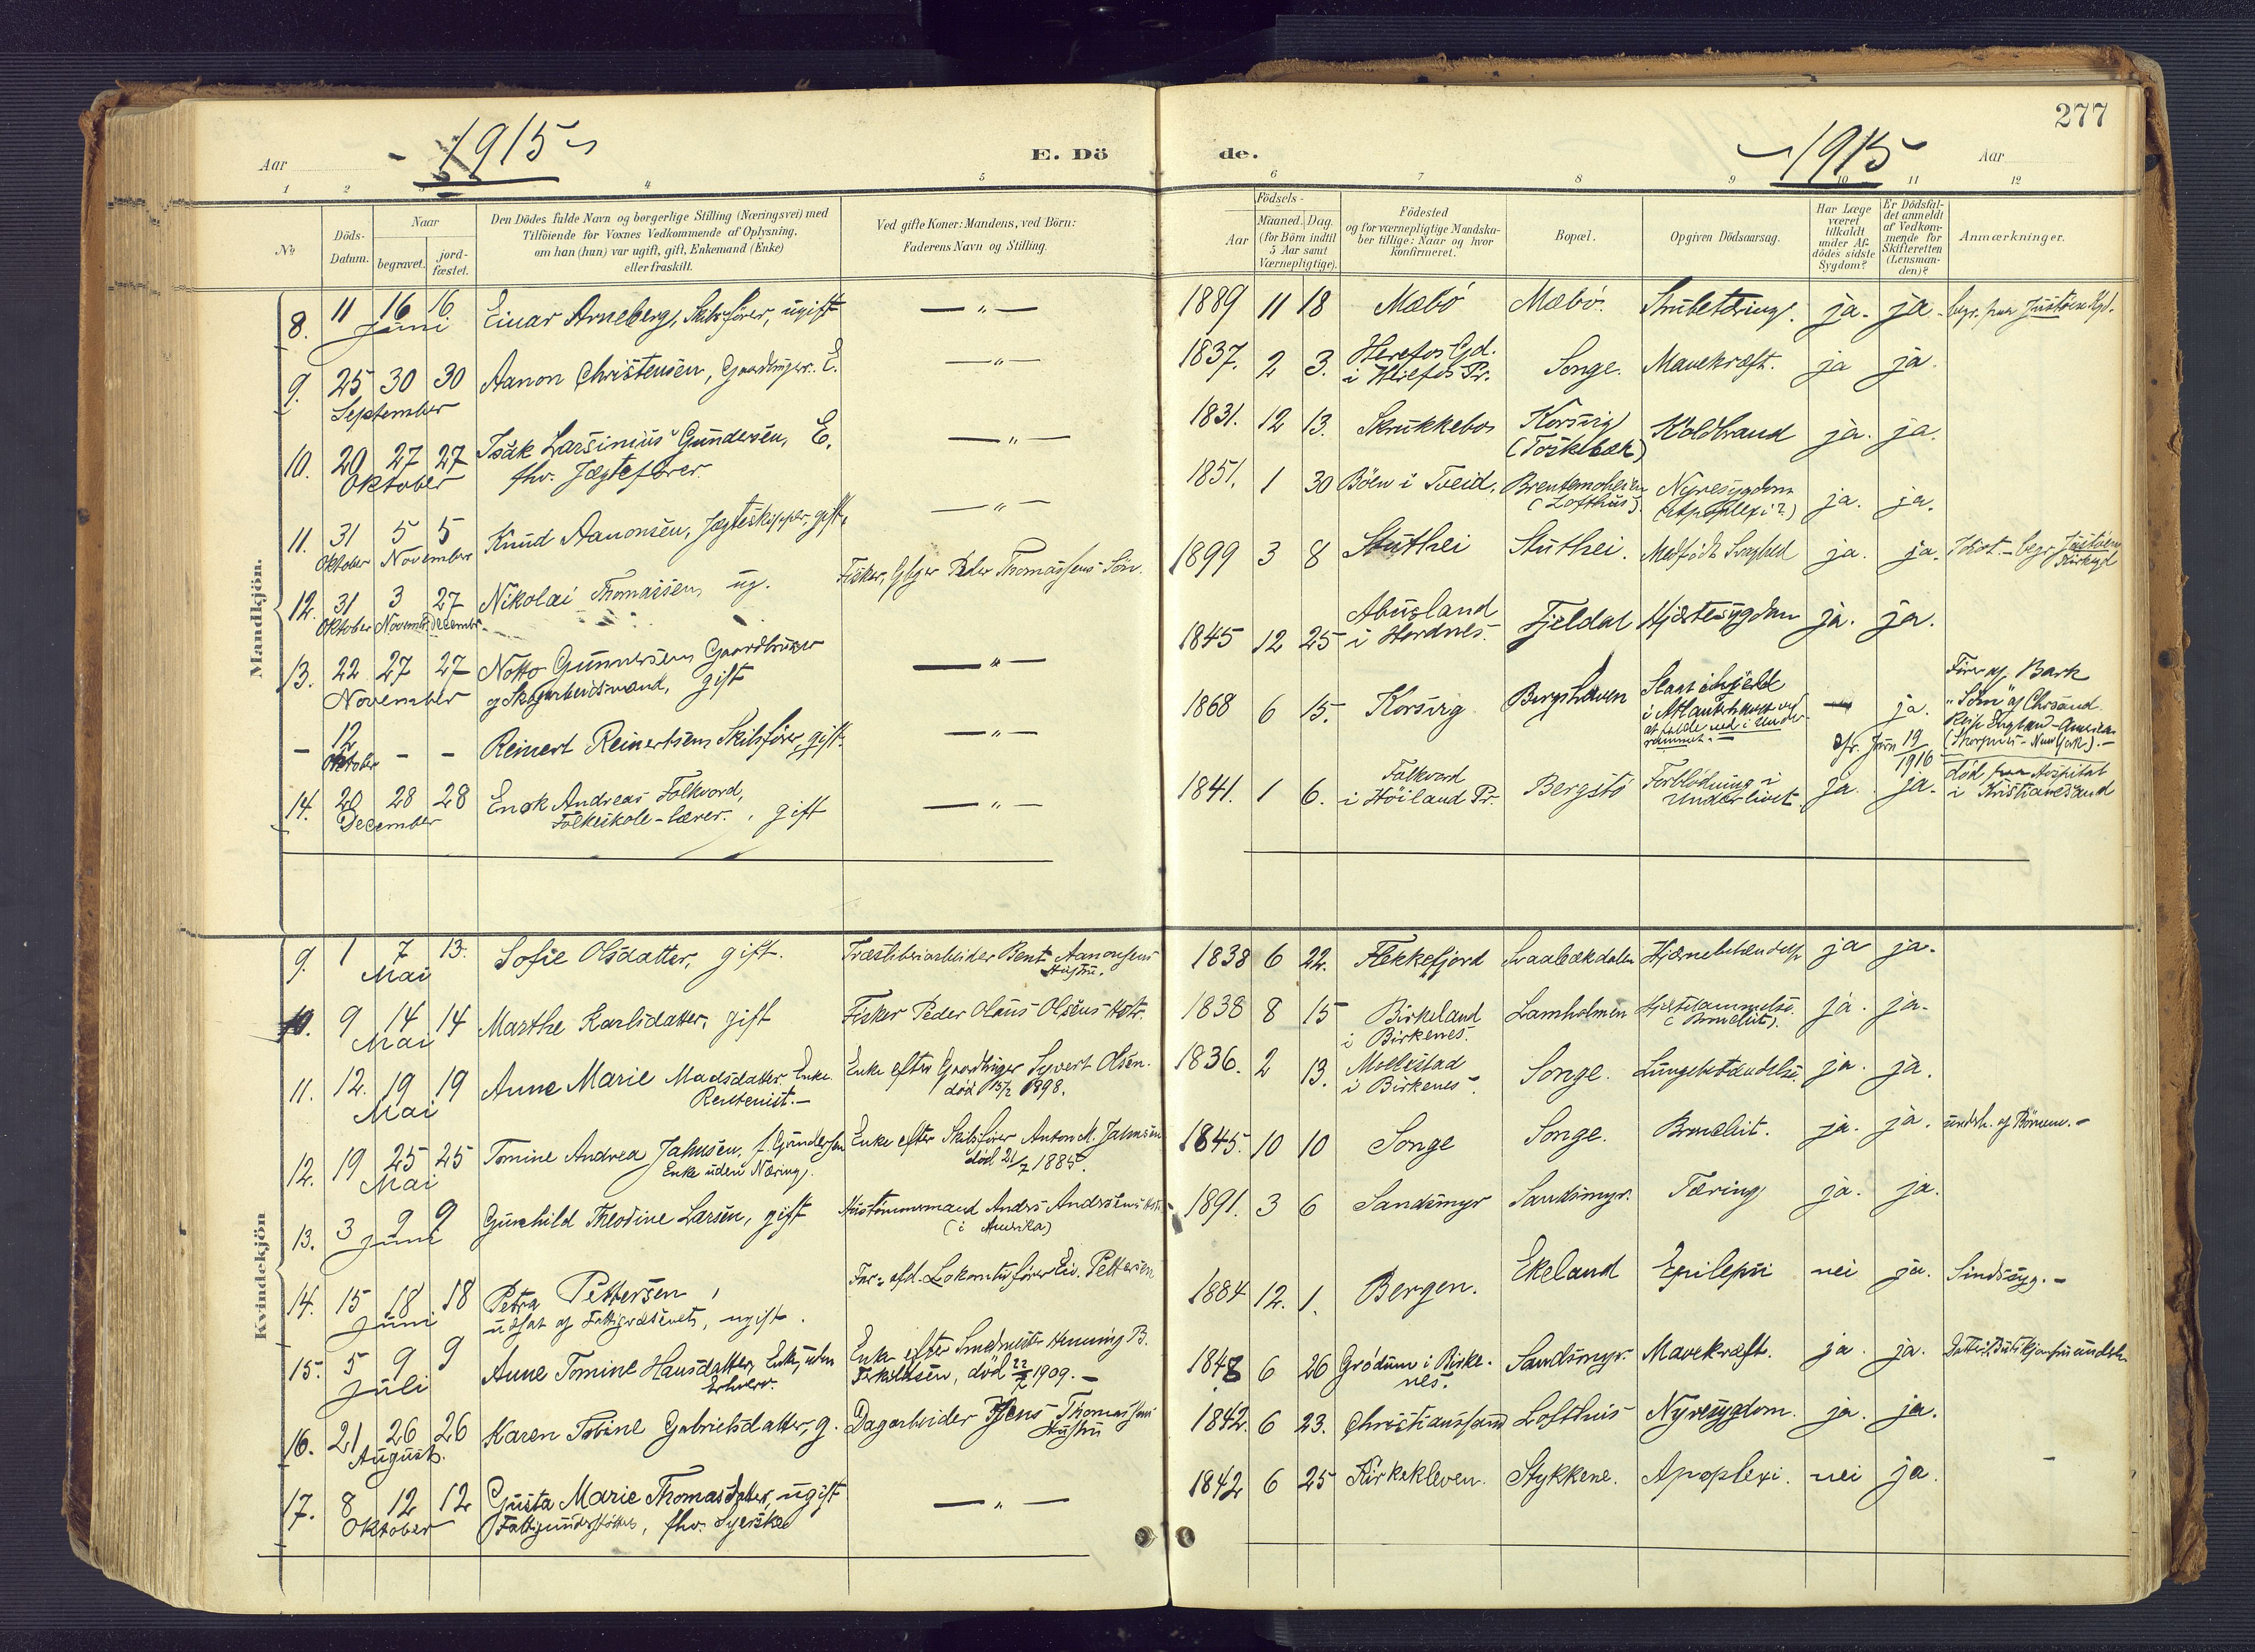 277
Aar - 1915 -
E. Döde.
- 1915 - Aar
1 2 3 4 5 6 7 8 9 10 11 12
No
Döds-Datum.
Naar
begravet.
jord-fæstet.
Den Dödes fulde Navn og borgerlige Stilling (Næringsvei) med
Tilföiende for Voxnes Vedkommende af Oplysning,
om han (hun) var ugift, gift, Enkemand (Enke)
eller fraskilt.
Ved gifte Koner: Mandens, ved Börn:
Faderens Navn og Stilling.
Födsels-
Aar
Maaned. Dag.
(for Börn indtil
5 Aar samt
Værnepligtige).
Födested
og for værnepligtige Mandska-
ber tillige: Naar og hvor
konfirmeret.
Bopæl.
Opgiven Dödsaarsag.
Har Læge
været
tilkaldt
under Af-
dödes sidste
Sygdom?
Er Dödsfal-
det anmeldt
af Vedkom-
mende for
Skifteretten
(Lensman-
den)?
Anmærkninger.
Mandkjön.
8. 11 16 16 Einar Arneberg, Skibsfører, ugift — " — 1889 11 18 Mæbö Mæbö. Strubetæring. ja. ja.
Juni
9. 25 30 30 Aanon Christensen, E. — " — 1837. 2 3. Herefos Gd. Songe. Mavekræft. ja ja.
September
10. 20 27 27 Isak Larsinius Gundersen, E. — " — 1831. 12 13. Skrukkebo Korsvig Koldbrand ja. ja.
Oktober fhv. Jægtefører.
11. 31 5 5 Knud Aanonsen, Jægteskipper, gift. — " — 1851. 1 30 Böen i Tveid. Nyresygdom ja. ja.
Oktober November (Lofthus). (Apoplexi?)
12. 31 3 27 Nikolai Thomassen, ug. Fisker, Peder Thomassens Sön. 1899 3 8 Stuthei Stuthei. Medfödt Svaghed ja. ja. Idiot.
Oktober Novembr. Decembr.
13. 22 27 27 Notto Gunnersen, Gaardbruker — " — 1845 12 25 Abusland i Herdnes. Fjeldal Hjertesygdom ja. ja.
November og Skogarbeidsmand, gift
— 12 — — Reinert Reinertsen, Skibsfører, gift. — " — 1868 6 15. Korsvig Bergshaven Slaat ihjel — ja.
Oktober i Atlanterhavet ved at falde ned i
Fører af Bark
"Söm" af Chrsand.
Reise England-Amerika
New York). —
14. 20 28 28 Enok Andreas Folkvord, — " — 1841. 1 6. Folkvord i Höiland Pr. Bergstö Forblödning i Underlivet ja. ja. död paa Hospital
December Folkeskole-lærer. gift i Kristianssand
Kvindekjön
9. 1 7 13. Sofie Olsdatter, gift. Bent Aanonsens Hustru. 1838 6 22. Flekkefjord Hjernebetændelse ja ja.
Mai
10. 9 14 14 Marthe Karlsdatter, gift Fisker Peder Olaus Olsens Hstr. 1838 8 15 Birkeland i Birkenes. Lamholmen (Bronchit). ja. ja.
Mai
11. 12. 19 19 Anne Marie Madsdatter. Enke. Enke efter Syvert Olsen. 1836. 2 13. Mollestad i Birkenes. Songe. Lungebetændelse. ja. ja.
Mai Rentenist. — död 1898.
12. 19 25 25 Tomine Andrea Jahnsen, f. Gundersen Enke efter Skibsfører Anton M. Jahnsen 1845. 10 10 Songe Songe. Bronchit. ja. ja. underh. af Börnene. —
Mai Enke uden Næring. död 21/7 1885.
13. 3 9 9 Gunhild Theodine Larsen, gift Andrs Andersens 1891. 3 6 Sandsmyr Sandsmyr. Tæring ja. ja.
Juni (i Amerika)
14. 15 18 18 Petra Pettersen, Far: afd. Lokomotivfører Pettersen 1884 12. 1. Bergen. Ekeland Epilepsi nei ja. Sindssyg. —
Juni udsat af Fattigvæsenet, ugift.
15. 5 9 9 Anne Tomine Hansdatter, Enke, uden Enke efter Henning B. 1848 6 26 Grödum i Birkenes. Sandsmyr. Mavekræft. ja. ja.
Juli Erhverv. död 22/7 1909. —
16. 21 26 26 Karen Tobine Gabrielsdatter, g. Dagarbeider Jens Thomassens Hustru 1842. 6 23. Christianssand Lofthus Nyresygdom. ja. ja.
August.
17. 8 12 12 Gusta Marie Thomasdatter, ugift — " — 1842 6 25 Kirkekleven. Stykkene. Apoplexi. nei ja.
Oktober Fattigunderstöttet, fhv. Syerske